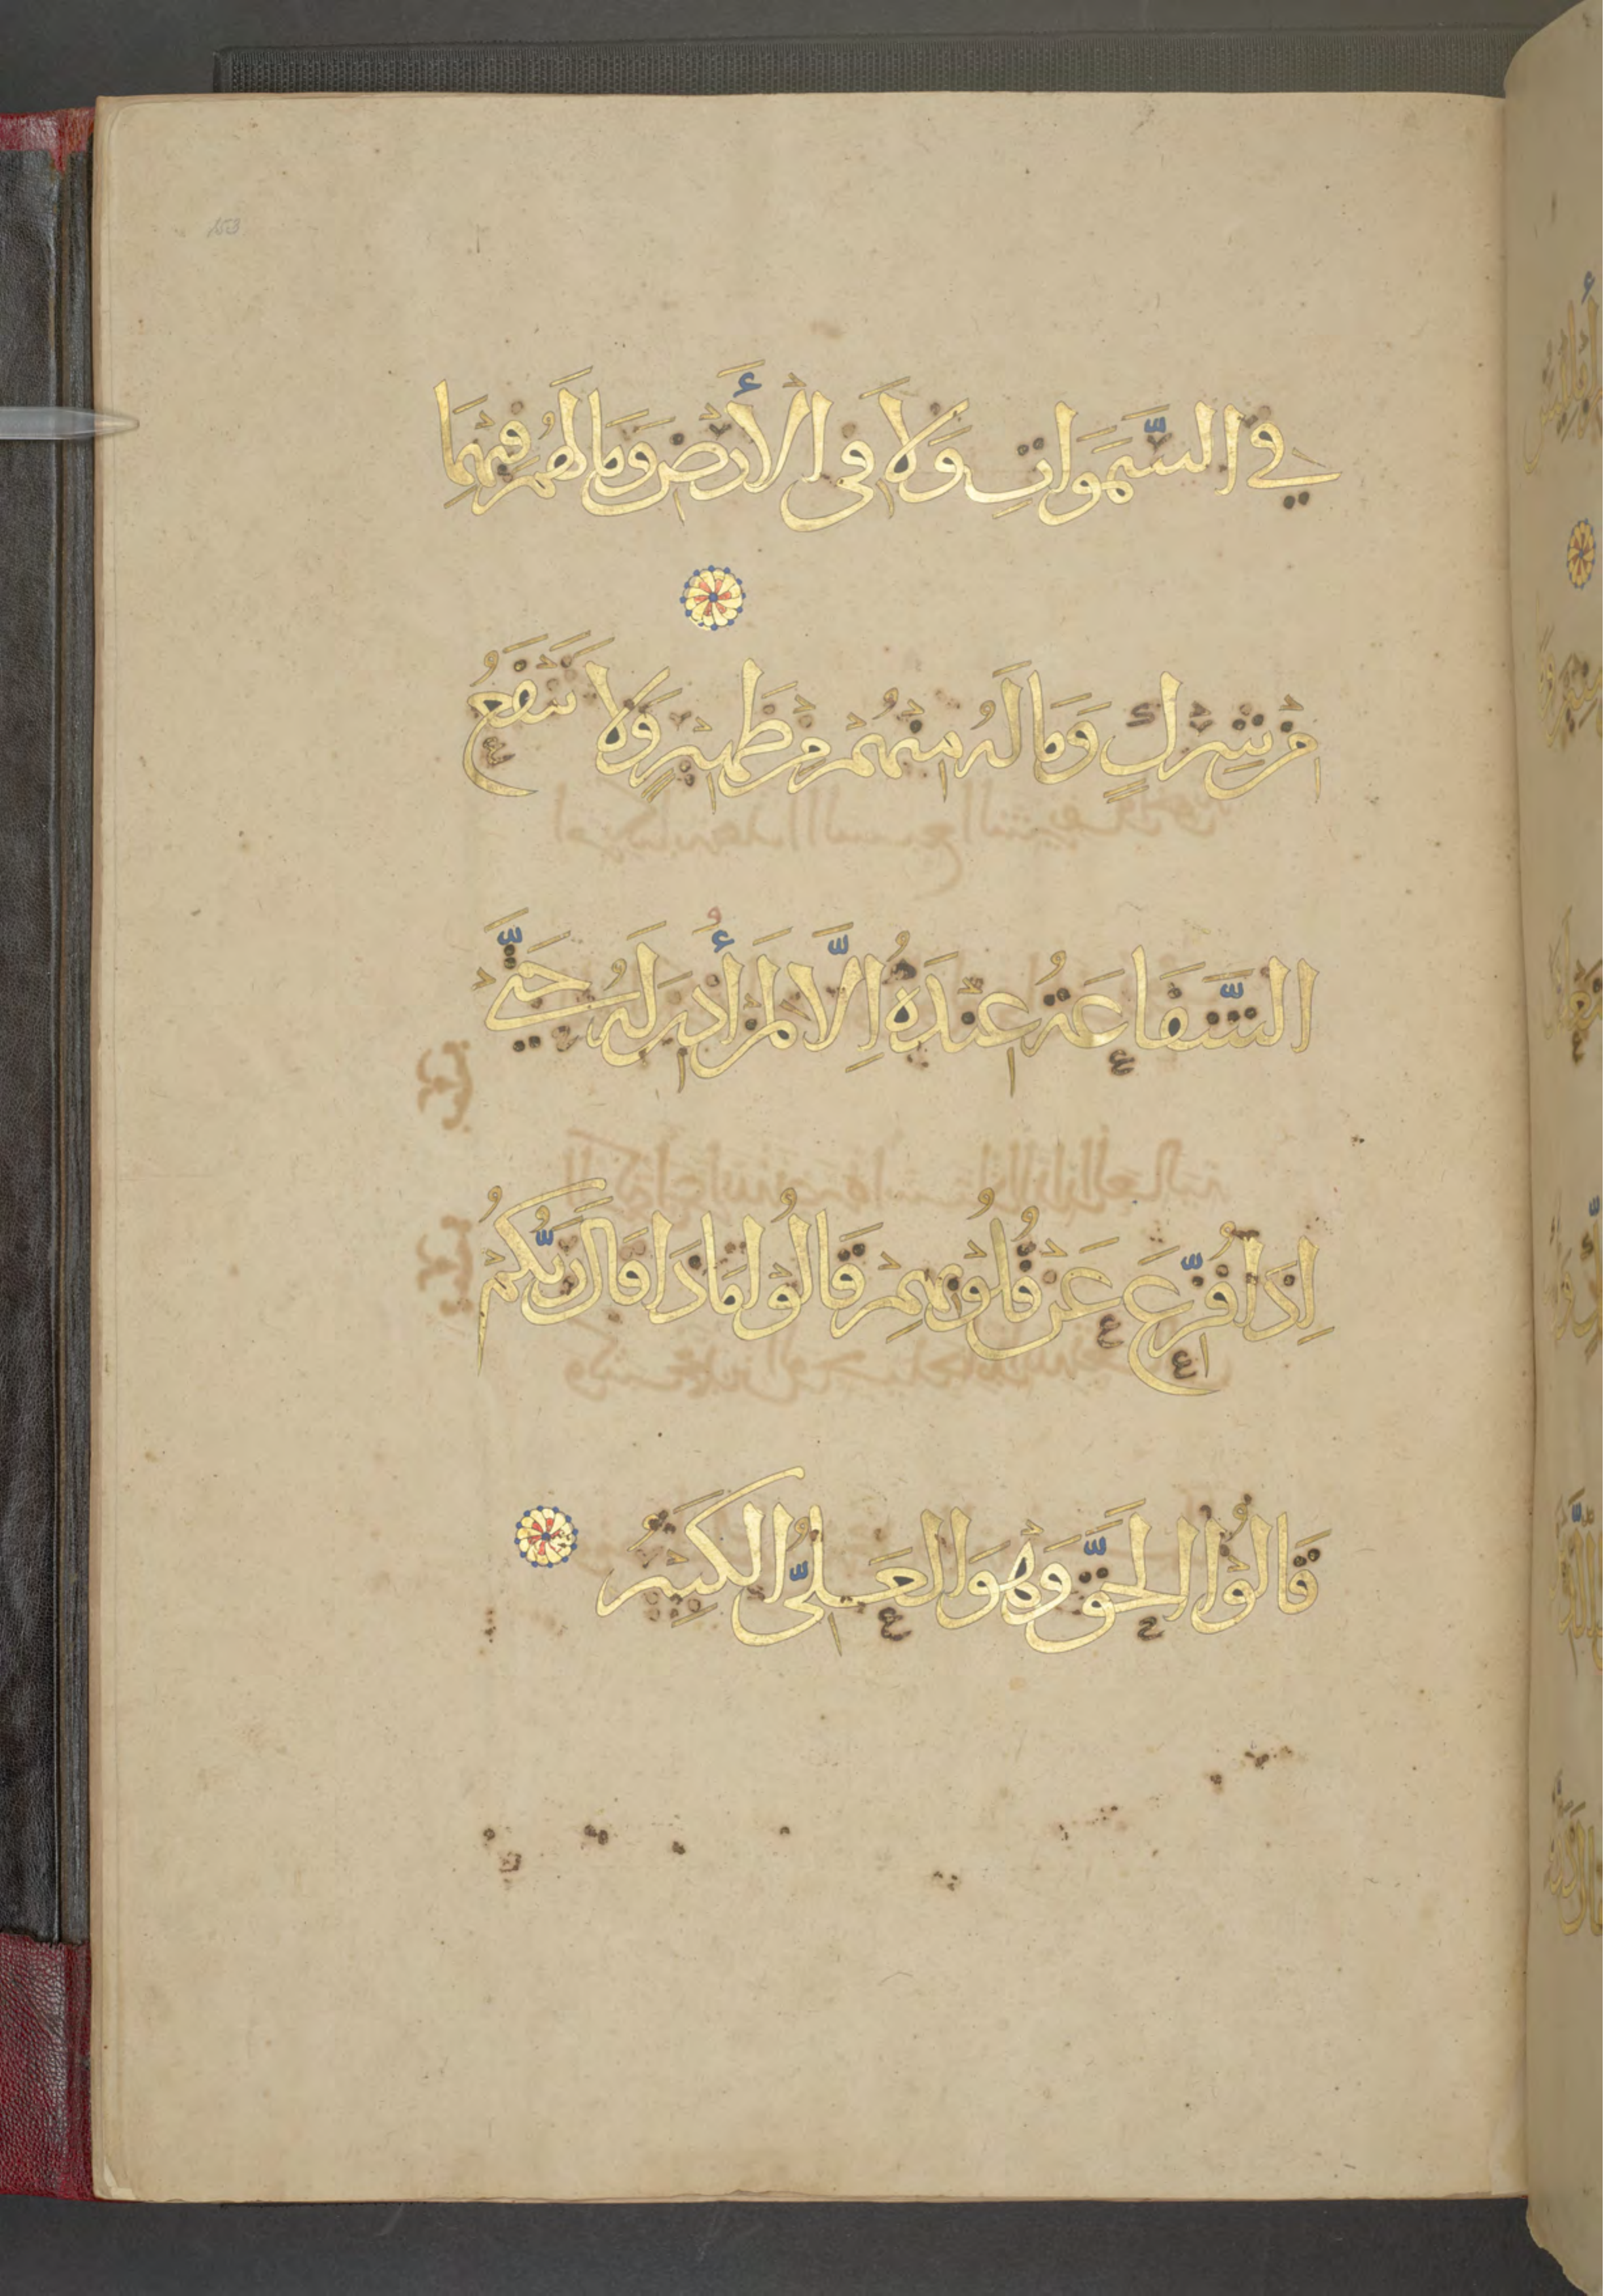 فِي السَّمَوَاتِ وَلَا فِى الْأَرْضِ وَمَا لَهُمْ فِيْهِمَا
مِنْ شِرْكٍ وَمَا لَهُ مِنْهُمْ مِنْ ظَهِيْرٍ وَلَا تَنْفَعُ
الشَّفَاعَةُ عِنْدَهُ إِلَّا لِمَنْ أُذِنَ لَهُ حَتَّىْ
اِذَا فُزِّعَ عَنْ قُلُوْبِهِمْ قَالُوْا مَاذَا قَالَ رَبُّكُمْ
قَالُوْا الْحَقَّ وَهْوَ الْعَلِىُّ الْكَبِيْرُ